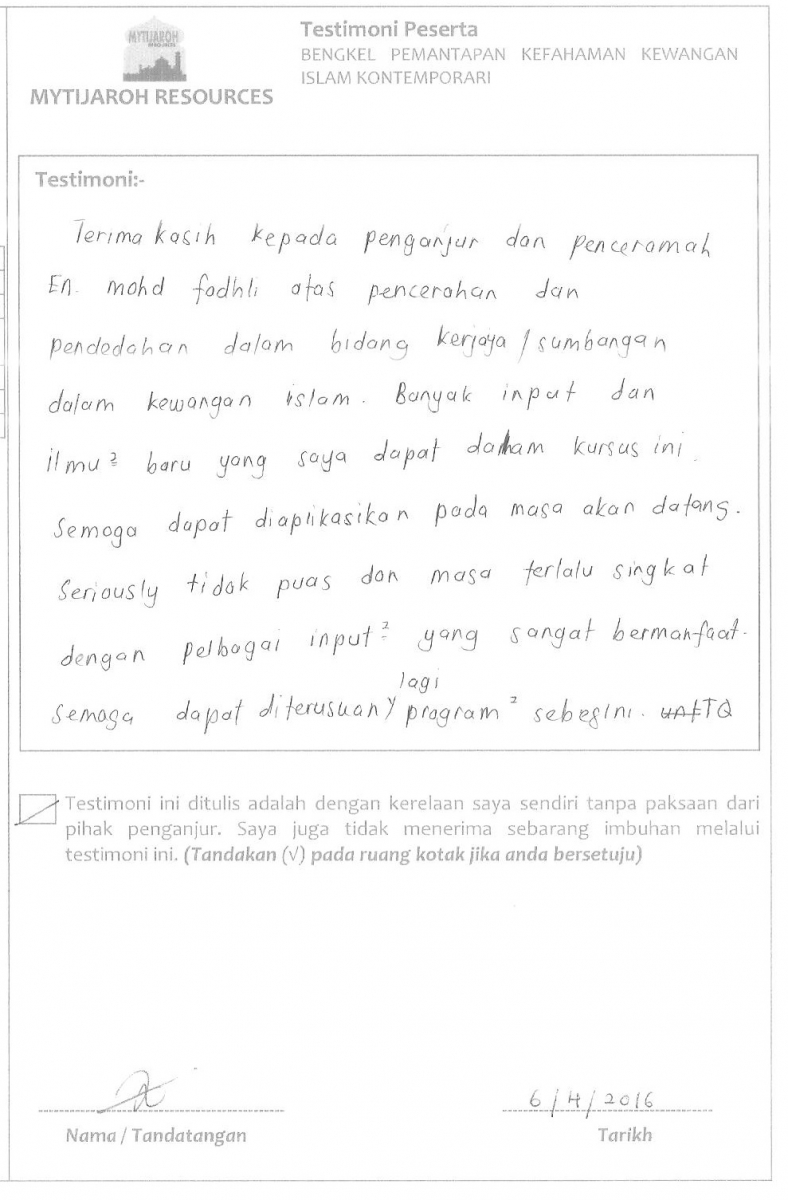 MYTIJAROH
RESOURCES
MYTIJAROH RESOURCES
Testimoni Peserta
BENGKEL PEMANTAPAN KEFAHAMAN KEWANGAN
ISLAM KONTEMPORARI
Testimoni:-
Terima kasih kepada penganjur dan penceramah
En. mohd fadhli atas pencerahan dan
pendedahan dalam bidang kerjaya / sumbangan
dalam kewangan islam. Banyak input dan
ilmu² baru yang saya dapat dalam kursus ini.
Semoga dapat diaplikasikan pada masa akan datang.
Seriously tidak puas dan masa terlalu singkat
dengan pelbagai input² yang sangat bermanfaat.
lagi
Semoga dapat diterusuan program² sebegini. TQ
Testimoni ini ditulis adalah dengan kerelaan saya sendiri tanpa paksaan dari
pihak penganjur. Saya juga tidak menerima sebarang imbuhan melalui
testimoni ini. (Tandakan (√) pada ruang kotak jika anda bersetuju)
6/4/2016
Nama / Tandatangan
Tarikh